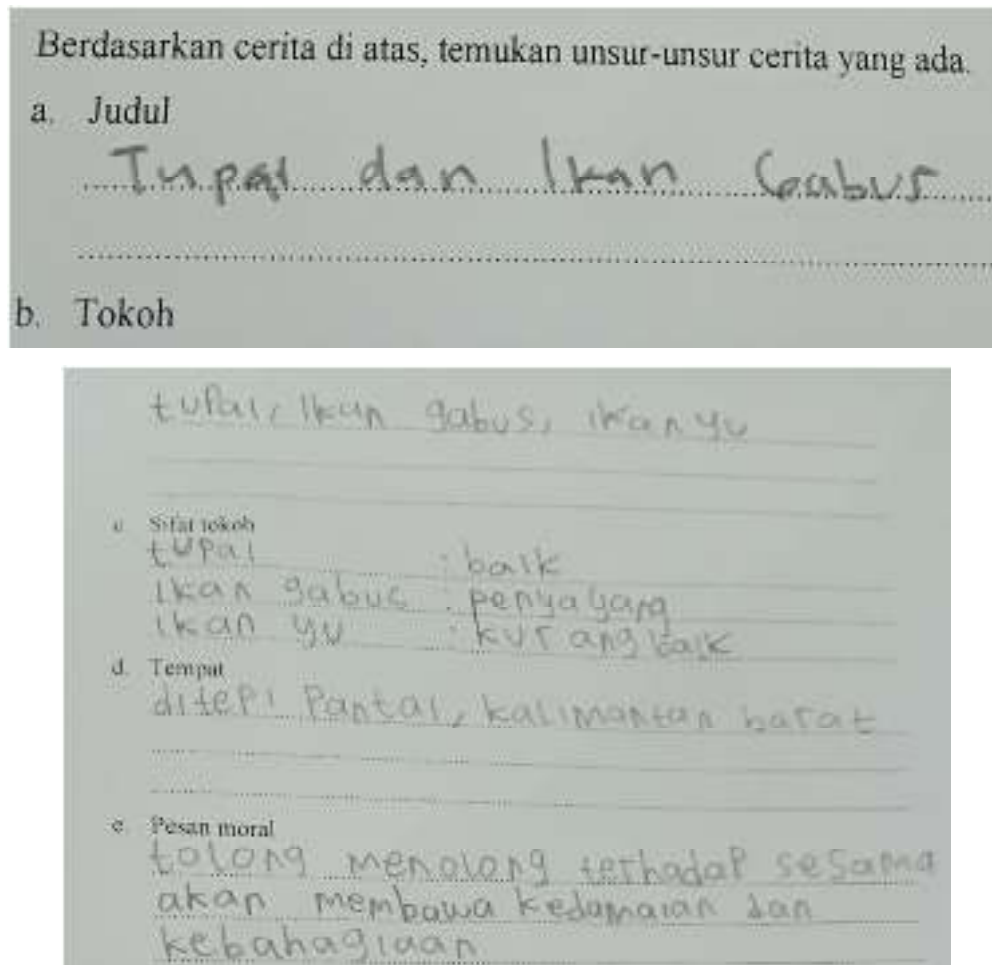 Berdasarkan cerita di atas, temukan unsur-unsur cerita yang ada.
a. Judul
Tupai dan Ikan Gabus
b. Tokoh
tupai, ikan gabus, ikan yu
c. Sifat tokoh
tupai : baik
ikan gabus : penyayang
ikan yu : kurang baik
d. Tempat
ditepi Pantai, kalimantan barat
e. Pesan moral
tolong menolong terhadap sesama
akan membawa kedamaian dan
kebahagiaan